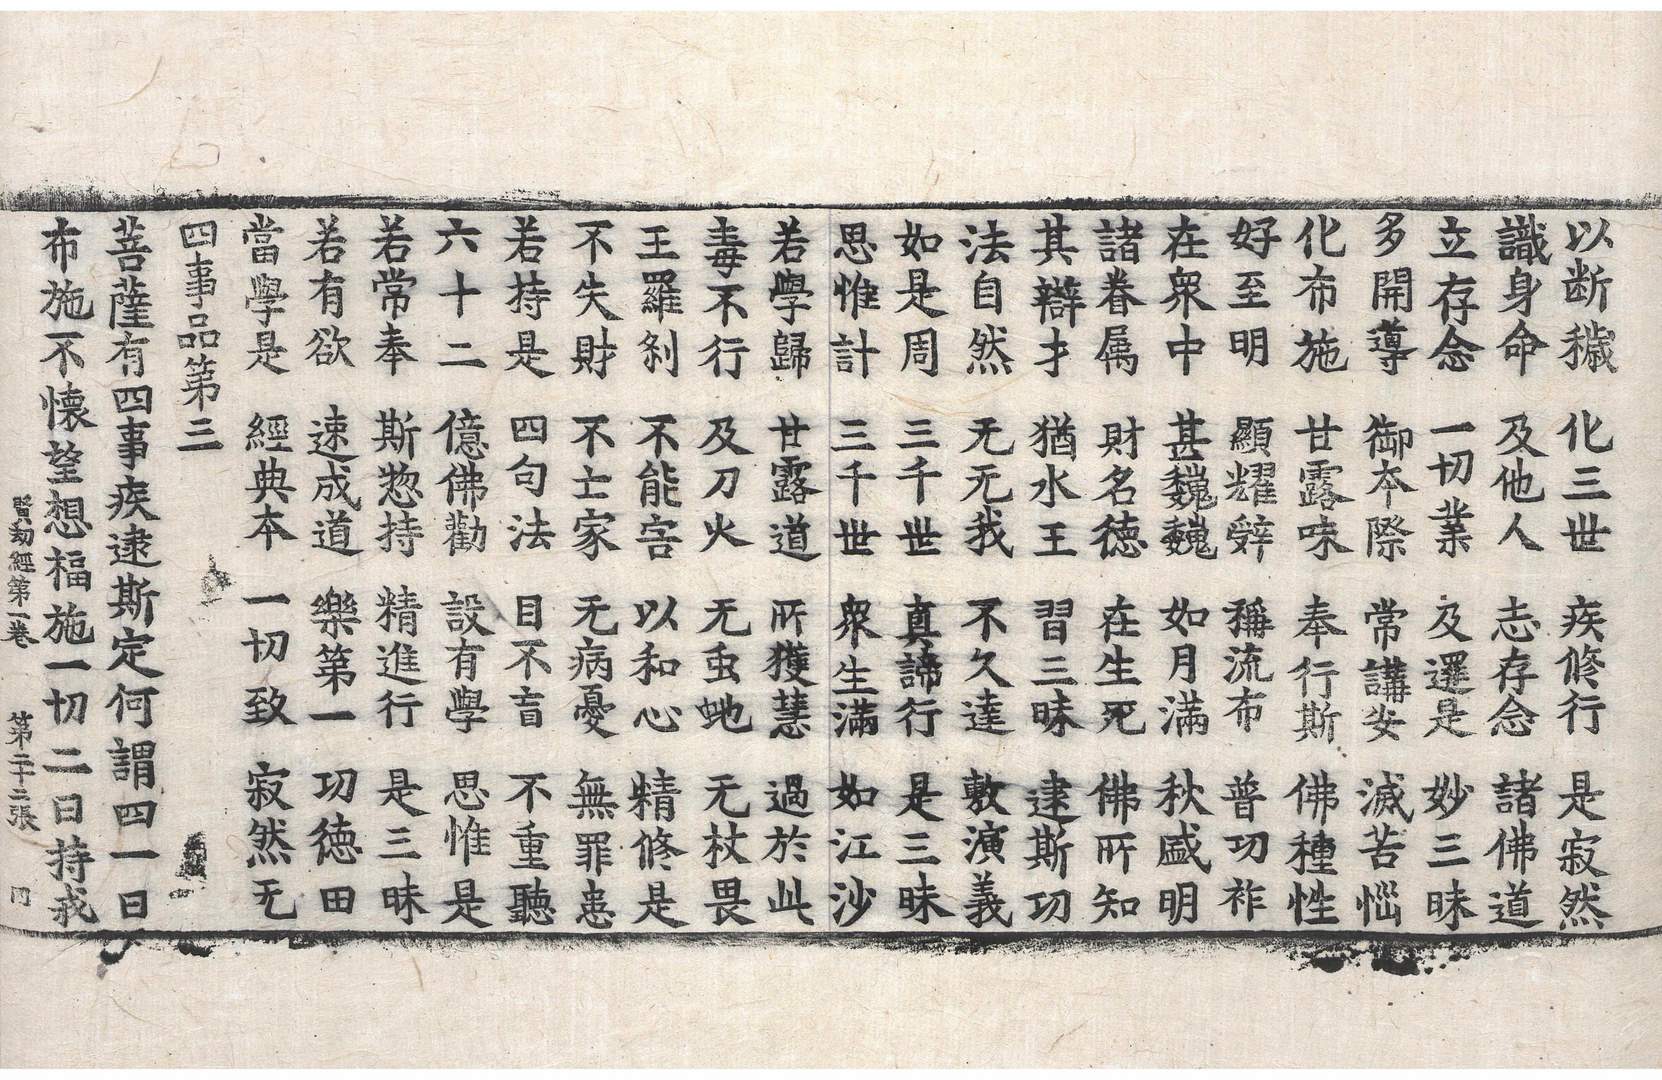 以断穢　化三世　疾修行　是寂然
識身命　及他人　志存念　諸佛道
立存念　一切業　及還是　妙三昧
多開導　御本際　常講安　滅苦惱
化布施　甘露味　奉行斯　佛種性
好至明　顯耀辤　稱流布　普功祚
在衆中　甚巍巍　如月滿　秋盛明
諸眷属　財名德　在生死　佛所知
其辯才　猶水王　習三昧　逮斯功
法自然　无无我　不久達　敷演義
如是周　三千世　真諦行　是三昧
思惟計　三千世　衆生滿　如江沙
若學歸　甘露道　所獲慧　過於此
毒不行　及刀火　无虫虵　无杖畏
王羅刹　不能害　以和心　精修是
不失財　不士家　无病憂　無罪恚
若持是　四句法　目不盲　不重聽
六十二　億佛勸　設有學　思惟是
若常奉　斯惣持　精進行　是三昧
若有欲　速成道　樂第一　功德田
當學是　經典本　一切致　寂然无
四事品第三
菩薩有四事疾逮斯定何謂四一曰
布施不懷望想福施一切二曰持戒
賢劫經第一卷　第二十二張